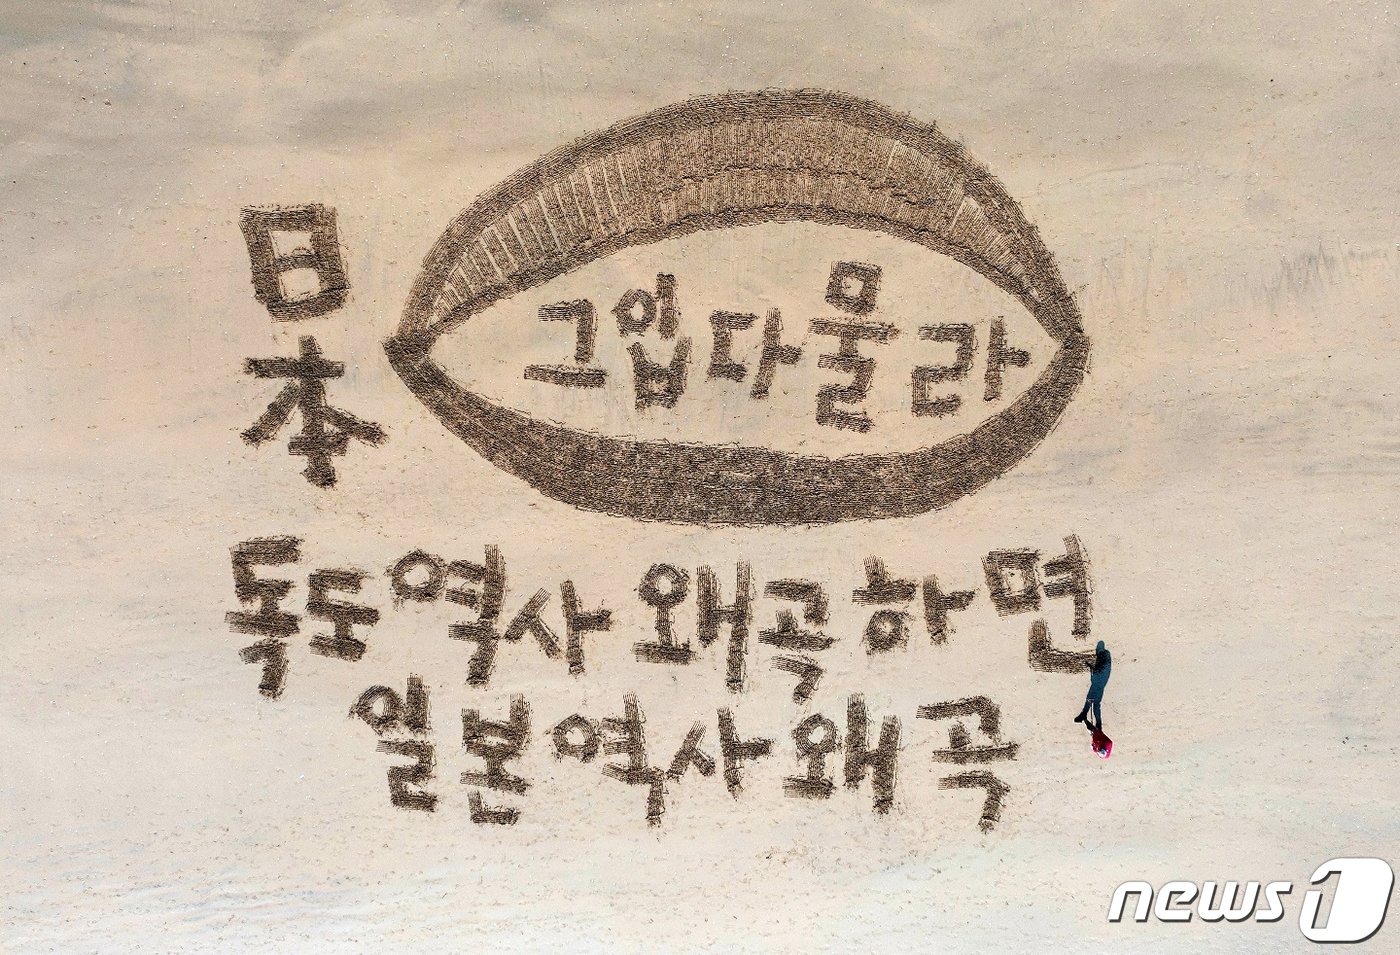 日本
그입다물라
독도역사 왜곡하면
일본역사왜곡
news1